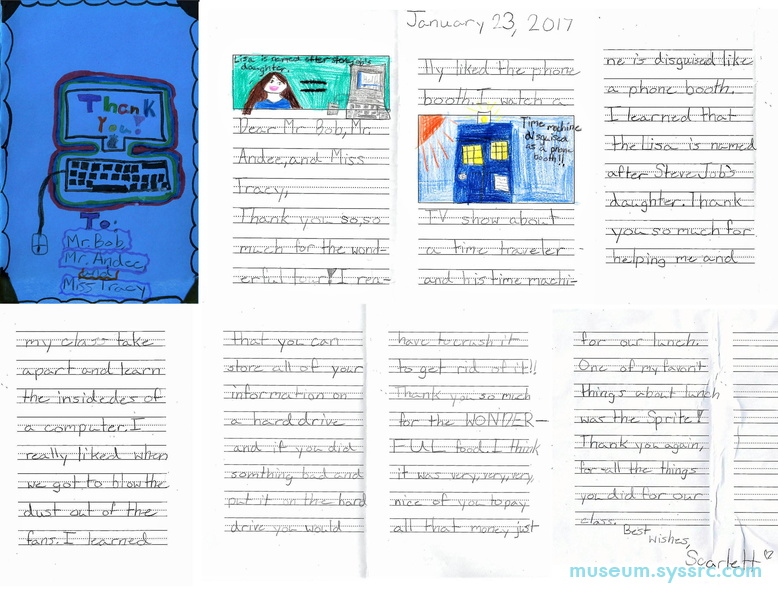 Thank
you!
To:
Mr. Bob,
Mr. Andee,
and
Miss Tracy
January 23, 2017
Lisa is named after stevejob's
daughter.
Dear Mr Bob, Mr.
Andee, and Miss
Tracy,
Thank you so, so
much for the wond-
erful tour! I rea-
lly liked the phone
booth. I watch a
Time machine
disguised
as a phone
booth!!
TV show about
a time traveler
and his time machi-
ne is disguised like
a phone booth.
I learned that
the Lisa is named
after Steve Job's
daughter. Thank
you so much for
helping me and
my class take
apart and learn
the insidedes of
a computer. I
really liked when
we got to blow the
dust out of the
fans. I learned
that you can
store all of your
information on
a hard drive
and if you did
somthing bad and
put it on the hard
drive you would
have to crush it
to get rid of it!!
Thank you so much
for the WONDER-
FUL food. I think
it was very, very, very,
nice of you to pay
all that money just
for our lunch.
One of my favorit
things about lunch
was the Sprite!
Thank you again,
for all the things
you did for our
class.
Best
wishes,
Scarlett
museum.syssrc.com